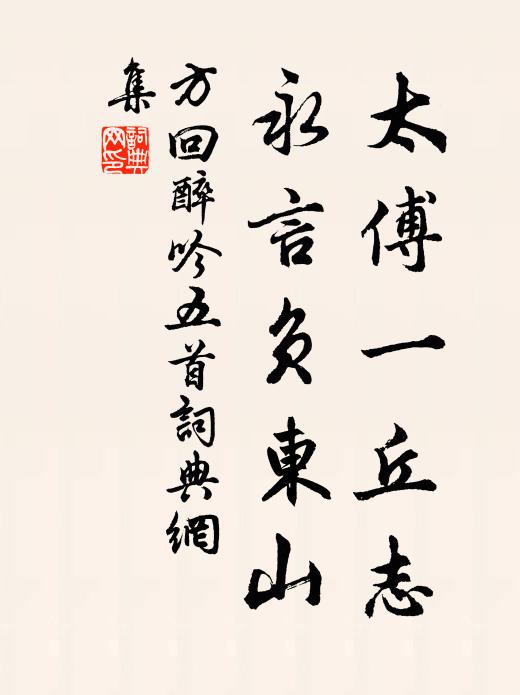 太傅一丘志
永言負東山
方回醉吟五首詞典網
集
詞典網印